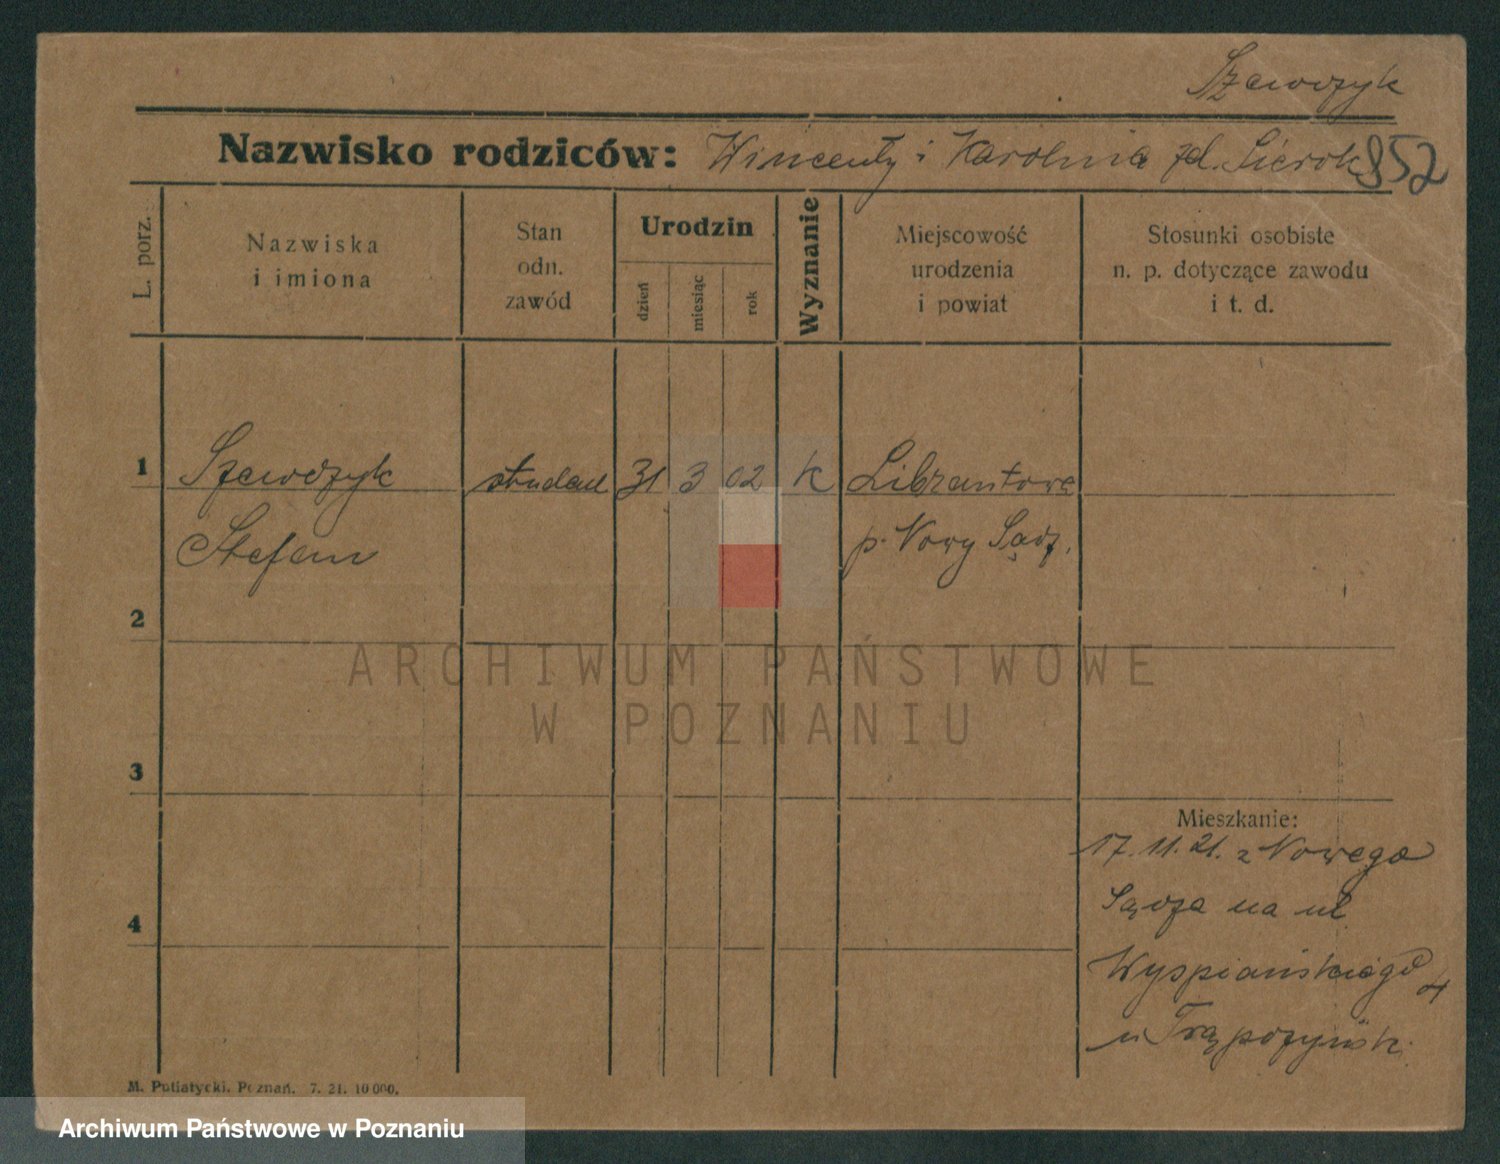 Szewczyk
Nazwisko rodziców: Wincenty i Karolina zd. Sierok 852
L. porz.
Nazwiska
i imiona
Stan
odn.
zawód
Urodzin
dzień
miesiąc
rok
Wyznanie
Miejscowość
urodzenia
i powiat
Stosunki osobiste
n. p. dotyczące zawodu
i t. d.
1 Szewczyk student 31 3 02 k Librantowa
Stefan p. Nowy Sącz.
2
ARCHIWUM PAŃSTWOWE
W POZNANIU
3
Mieszkanie:
17.11.21. z Nowego
4 Sącza na ul
Wyspiańskiego 4
u Trąpczyńsk.
M. Putiatycki, Poznań. 7. 21. 10 000.
Archiwum Państwowe w Poznaniu